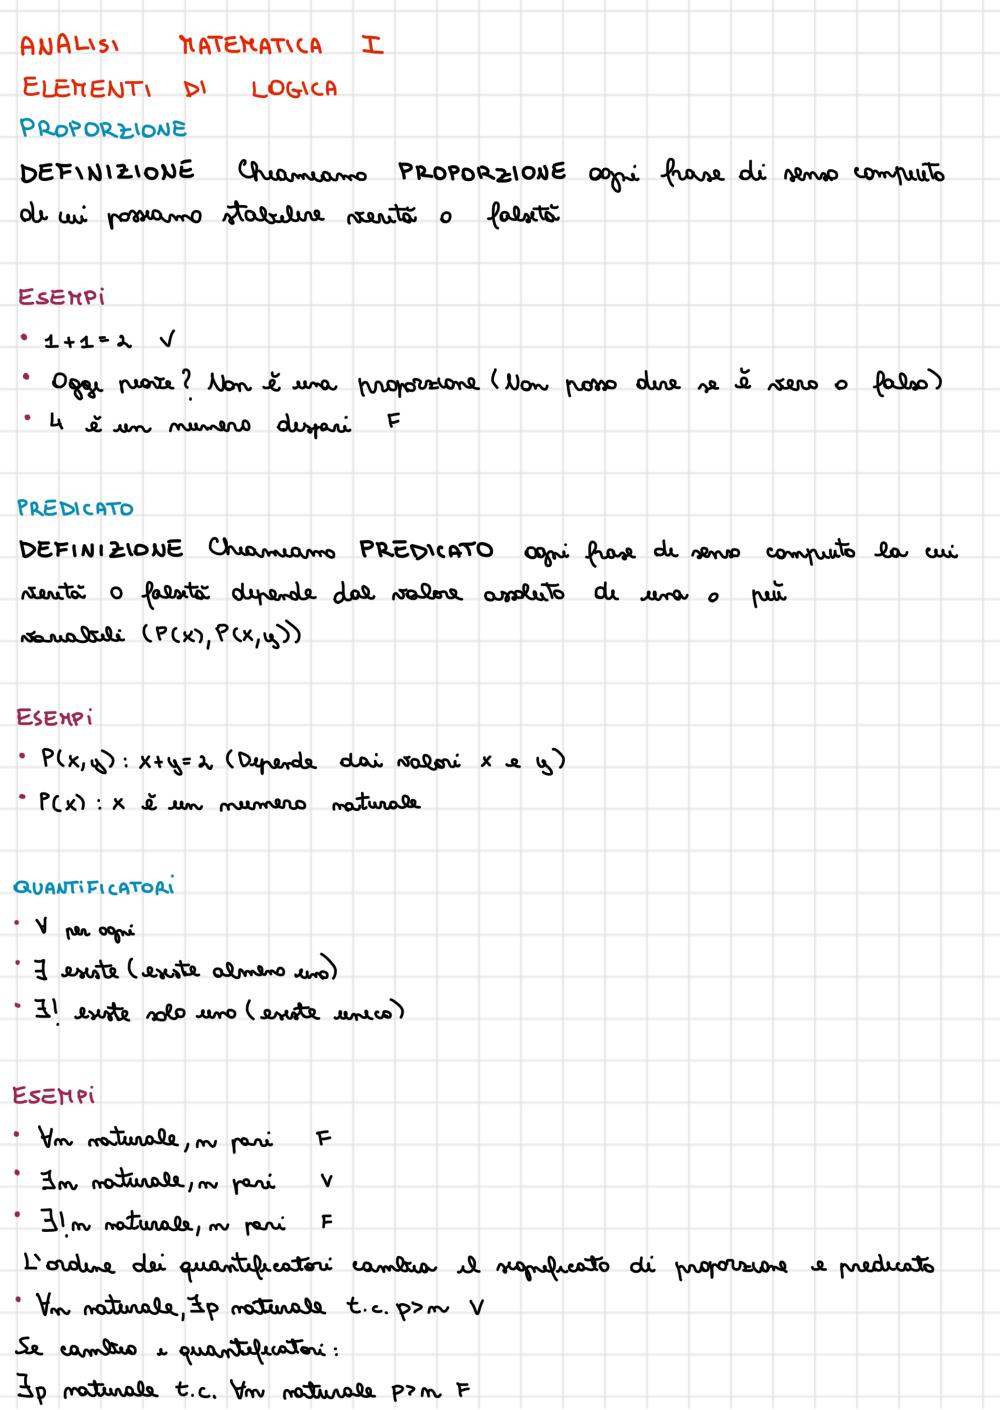 ANALISI MATEMATICA I
ELEMENTI DI LOGICA
PROPORZIONE
DEFINIZIONE Chiamiamo PROPORZIONE ogni frase di senso compiuto
di cui possiamo stabilire verità o falsità
ESEMPI
• 1+1=2 V
• Oggi piove? Non è una proporzione (Non posso dire se è vero o falso)
• 4 è un numero dispari F
PREDICATO
DEFINIZIONE Chiamiamo PREDICATO ogni frase di senso compiuto la cui
verità o falsità dipende dal valore assoluto di una o più
variabili (P(x), P(x,y))
ESEMPI
• P(x,y): x+y=2 (Dipende dai valori x e y)
• P(x): x è un numero naturale
QUANTIFICATORI
• ∀ per ogni
• ∃ esiste (esiste almeno uno)
• ∃! esiste solo uno (esiste unico)
ESEMPI
• ∀n naturale, n pari F
• ∃n naturale, n pari V
• ∃!n naturale, n pari F
L'ordine dei quantificatori cambia il significato di proporzione e predicato
• ∀n naturale, ∃p naturale t.c. p>n V
Se cambio i quantificatori:
∃p naturale t.c. ∀n naturale p>n F